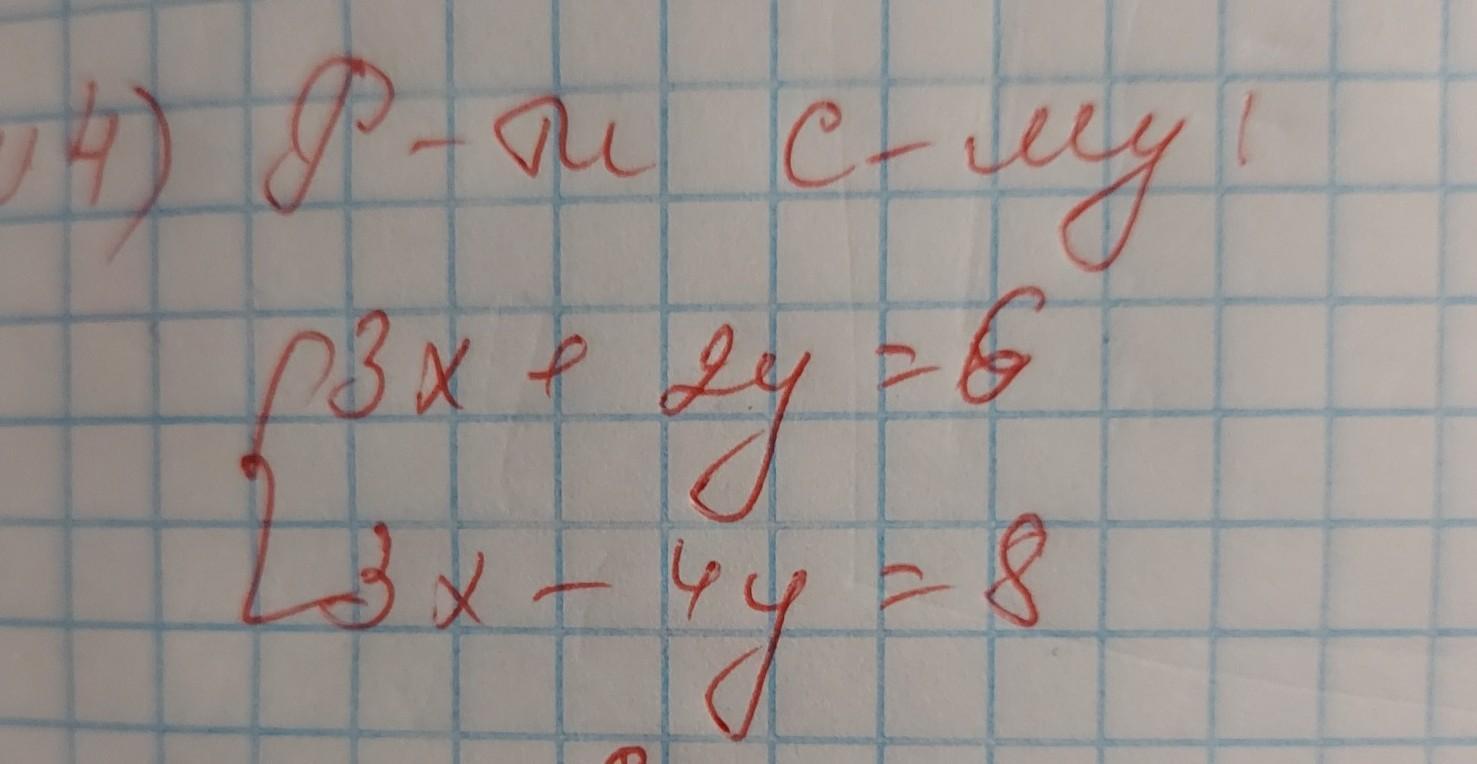 4) Р-ти с-му
3x + 2y = 6
3x - 4y = 8